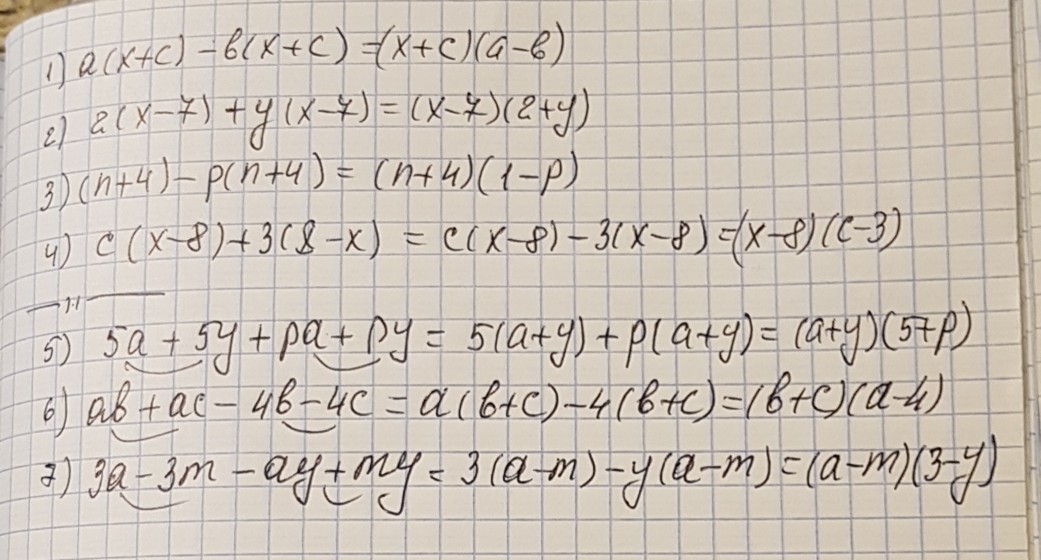 1) a(x+c) - в(x+c) = (x+c)(a-в)
2) 2(x-7) + y(x-7) = (x-7)(2+y)
3) (n+4) - p(n+4) = (n+4)(1-p)
4) c(x-8)+3(8-x) = c(x-8)-3(x-8) = (x-8)(c-3)
5) 5a + 5y + pa + py = 5(a+y) + p(a+y) = (a+y)(5+p)
6) aв + ac - 4в - 4c = a(в+c) - 4(в+c) = (в+c)(a-4)
7) 3a - 3m - ay + my = 3(a-m) - y(a-m) = (a-m)(3-y)